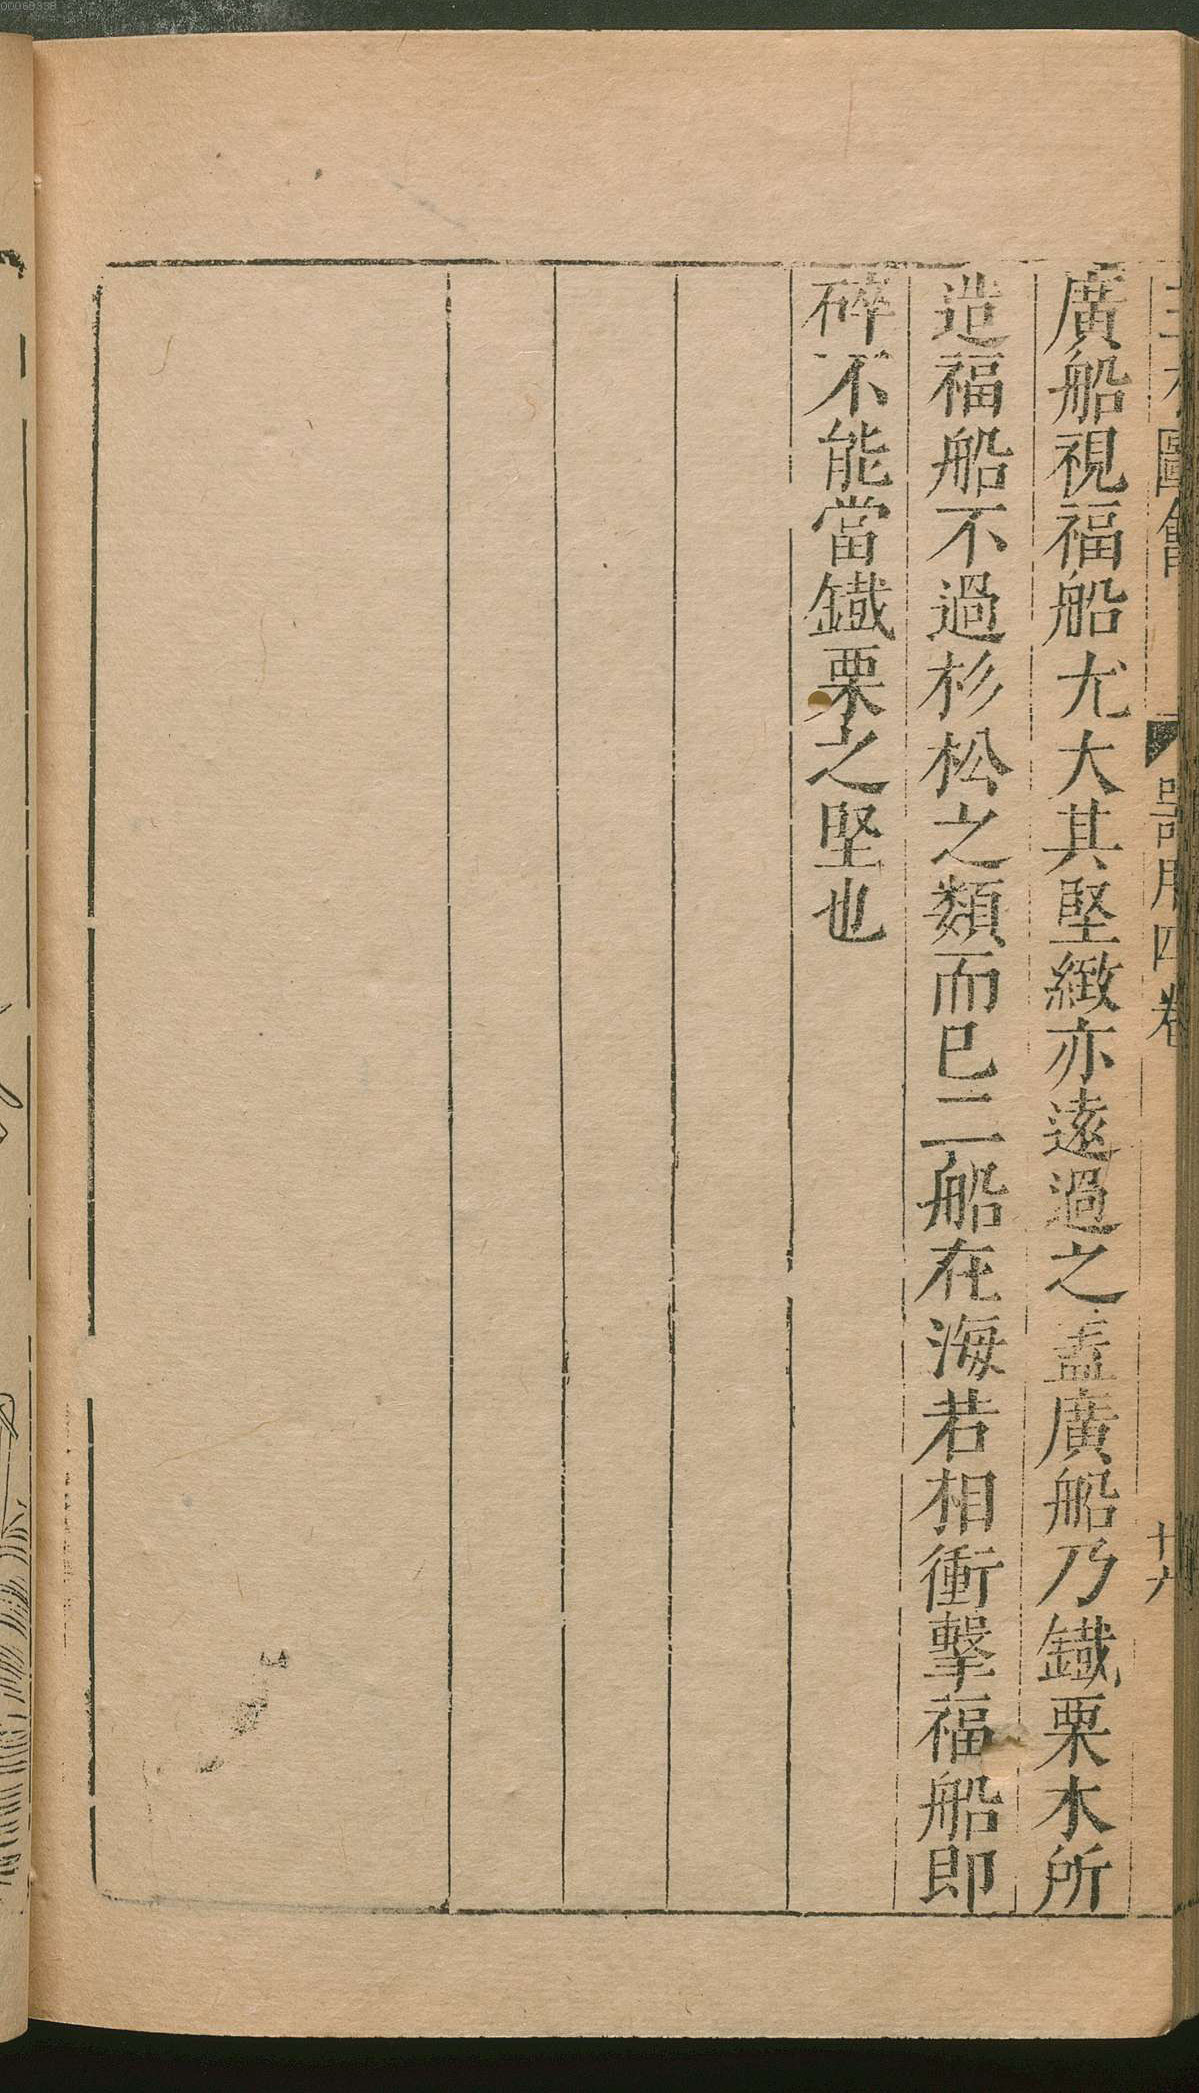 圖會 器用四卷 十六
廣船視福船尤大其堅緻亦遠過之盖廣船乃鐵栗木所
造福船不過杉松之類而已二船在海若相衝擊福船即
碎不能當鐵栗之堅也
00068338